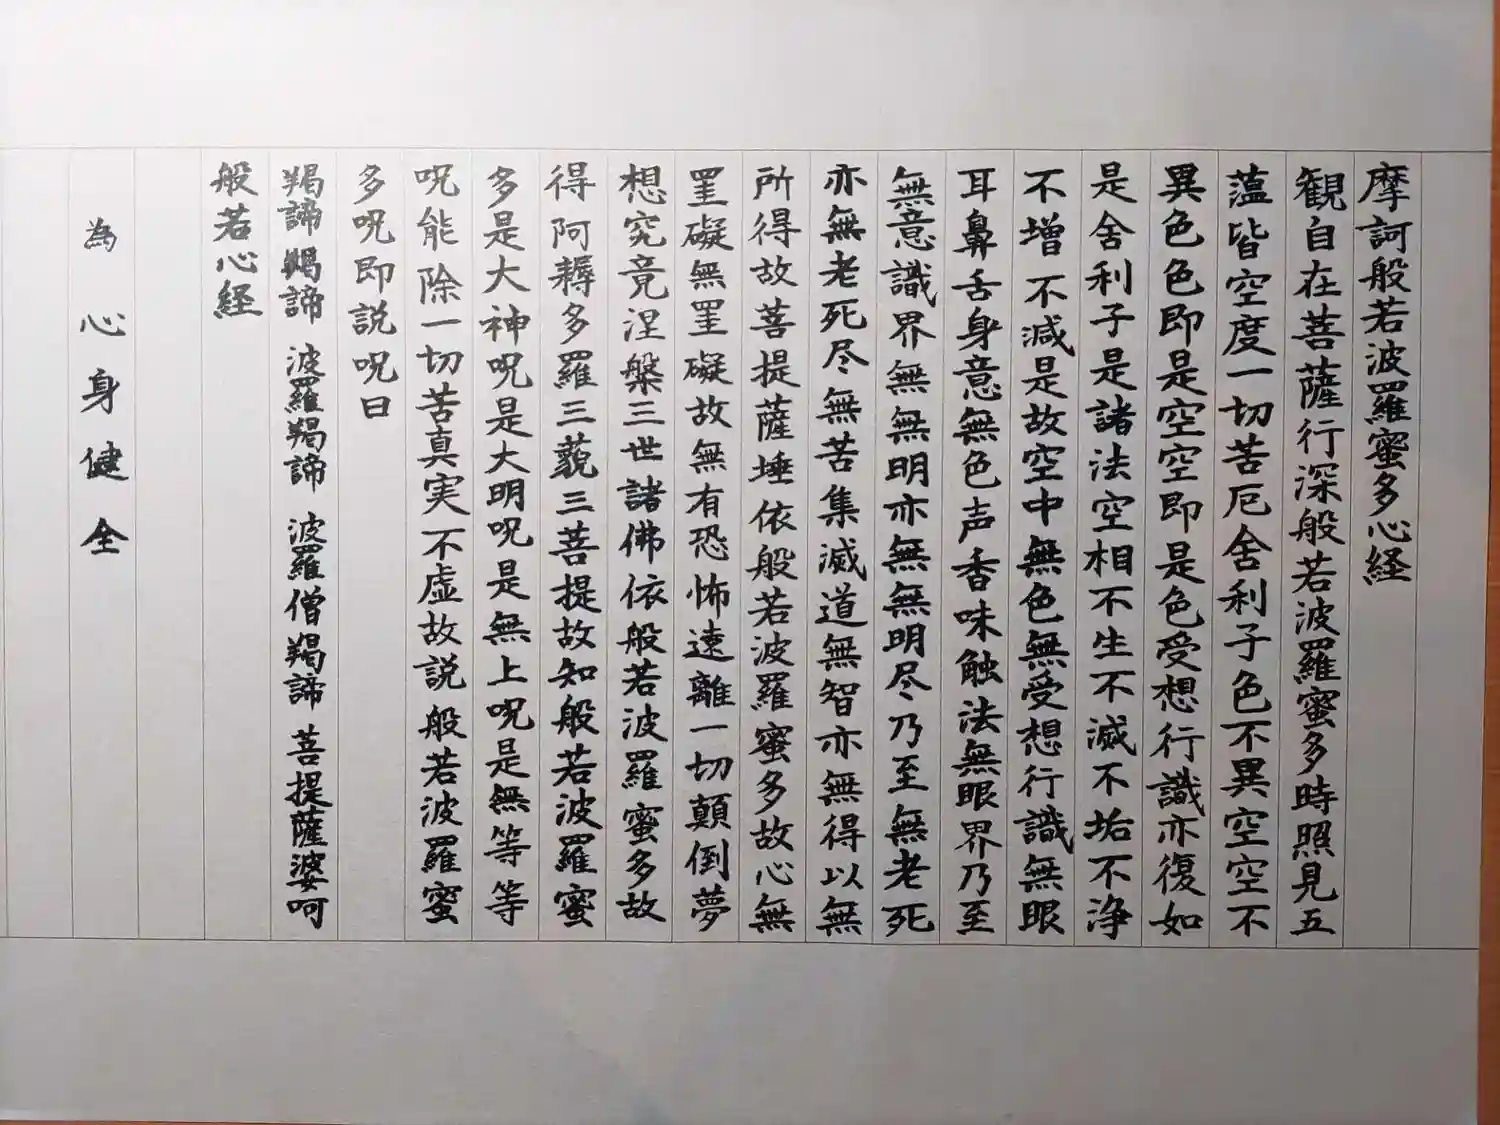 摩訶般若波羅蜜多心経
観自在菩薩行深般若波羅蜜多時照見五
蕰皆空度一切苦厄舍利子色不異空空不
異色色即是空空即是色受想行識亦復如
是舍利子是諸法空相不生不滅不垢不浄
不增不減是故空中無色無受想行識無眼
耳鼻舌身意無色声香味触法無眼界乃至
無意識界無無明亦無無明尽乃至無老死
亦無老死尽無苦集滅道無智亦無得以無
所得故菩提薩埵依般若波羅蜜多故心無
罣礙無罣礙故無有恐怖遠離一切顛倒夢
想究竟涅槃三世諸佛依般若波羅蜜多故
得阿耨多羅三藐三菩提故知般若波羅蜜
多是大神呪是大明呪是無上呪是無等等
呪能除一切苦真実不虚故説般若波羅蜜
多呪即説呪曰
羯諦羯諦 波羅羯諦 波羅僧羯諦 菩提薩婆呵
般若心経
為 心身健全